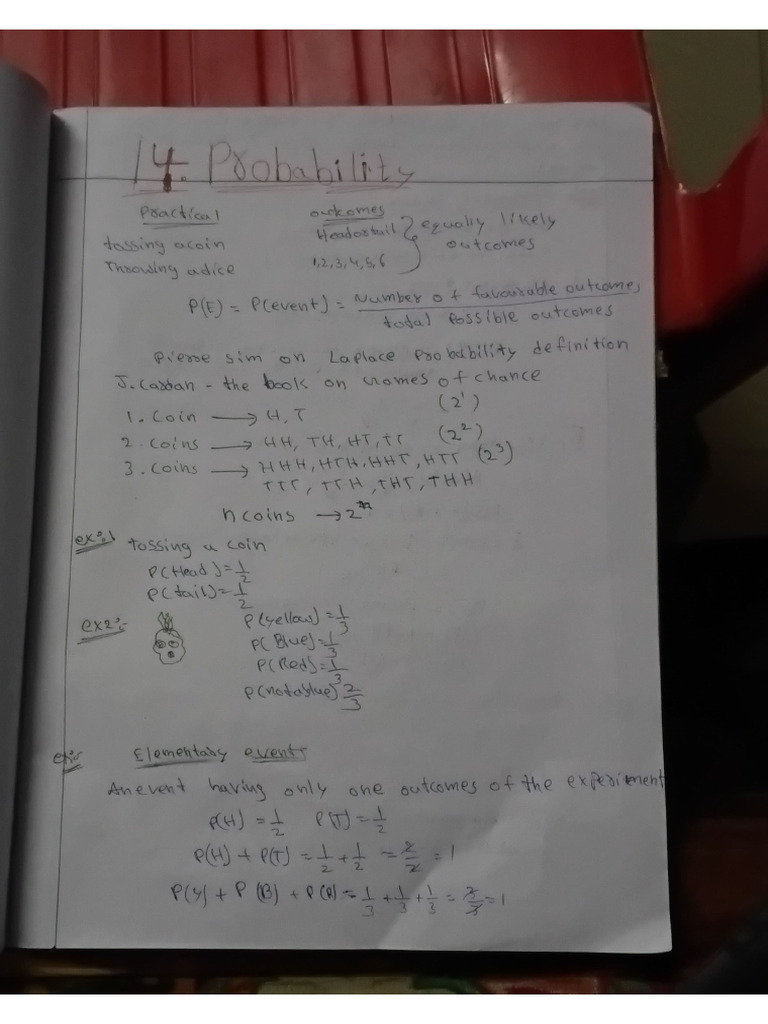 14. Probability
Practical outcomes
tossing acoin Headortail equally likely
Throwing adice 1,2,3,4,5,6 outcomes
P(E) = P(event) = Number of favourable outcomes
total possible outcomes
Pierre sim on Laplace Probability definition
J. Cardan - the book on Games of chance
1. Coin → H, T (2¹)
2. Coins → HH, TH, HT, TT (2²)
3. Coins → HHH, HTH, HHT, HTT (2³)
TTT, TTH, THT, THH
n coins → 2ⁿ
ex:1 tossing a coin
P(Head) = 1/2
P(tail) = 1/2
ex2:- P(yellow) = 1/3
P(Blue) = 1/3
P(Red) = 1/3
P(notablue) 2/3
ex:- Elementary events
An event having only one outcomes of the experiment
P(H) = 1/2 P(T) = 1/2
P(H) + P(T) = 1/2 + 1/2 = 2/2 = 1
P(Y) + P(B) + P(R) = 1/3 + 1/3 + 1/3 = 3/3 = 1